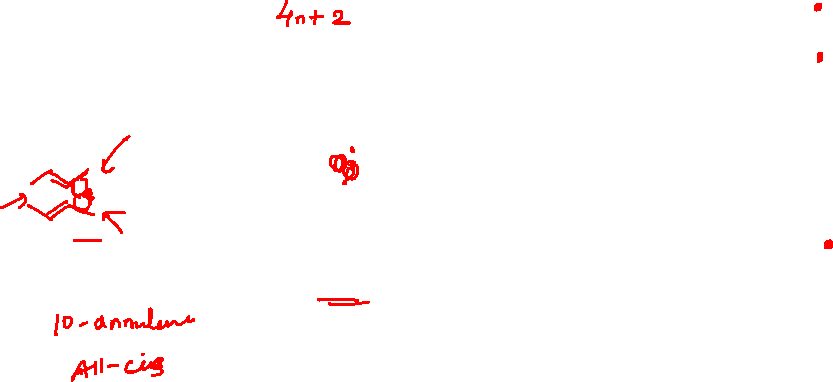 4n+2
10-annulene
All-cis